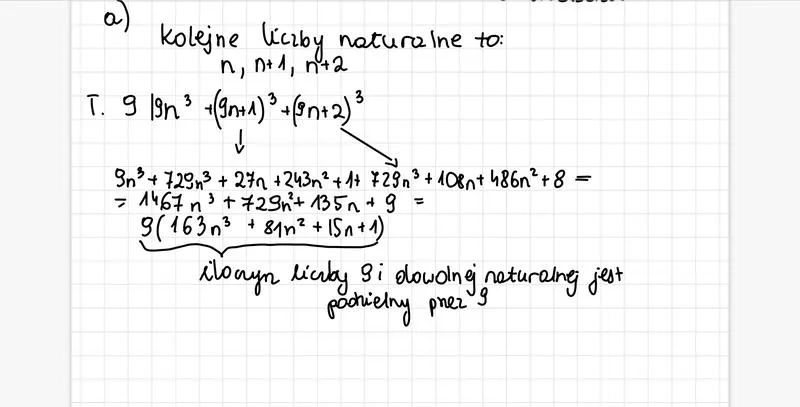 a)
Kolejne liczby naturalne to:
n, n+1, n+2
T. 9 |9n³ +(9n+1)³+(9n+2)³
9n³ + 729n³ + 27n +243n²+1+ 729n³+108n+486n²+8 =
= 1467n³ + 729n²+135n + 9 =
9(163n³ + 81n² + 15n+1)
iloczyn liczby 9 i dowolnej naturalnej jest
podzielny przez 9